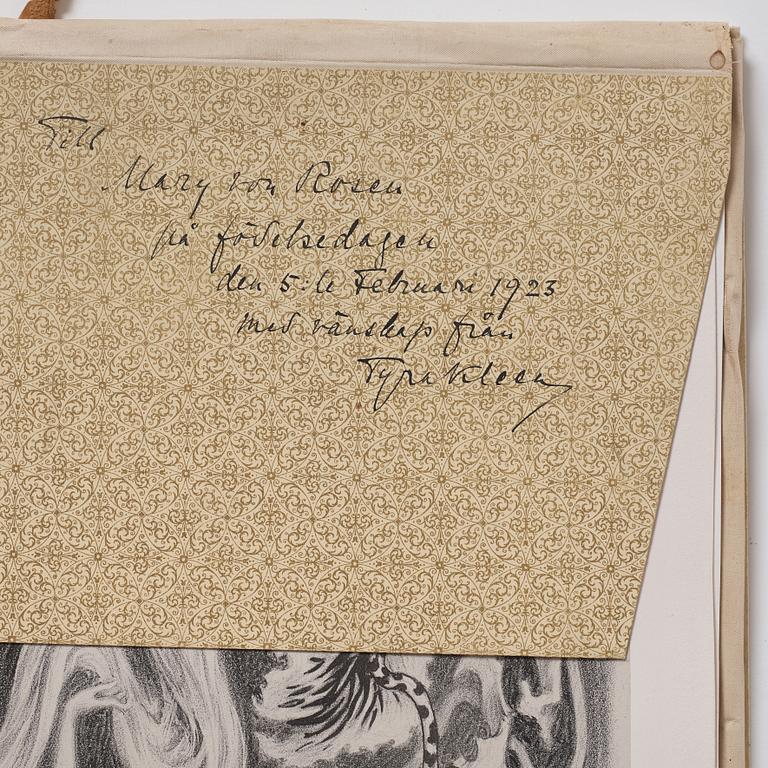 Till
Mary von Rosen
på födelsedagen
den 5:te Februari 1923
med vänskap från
Tyra Kleen